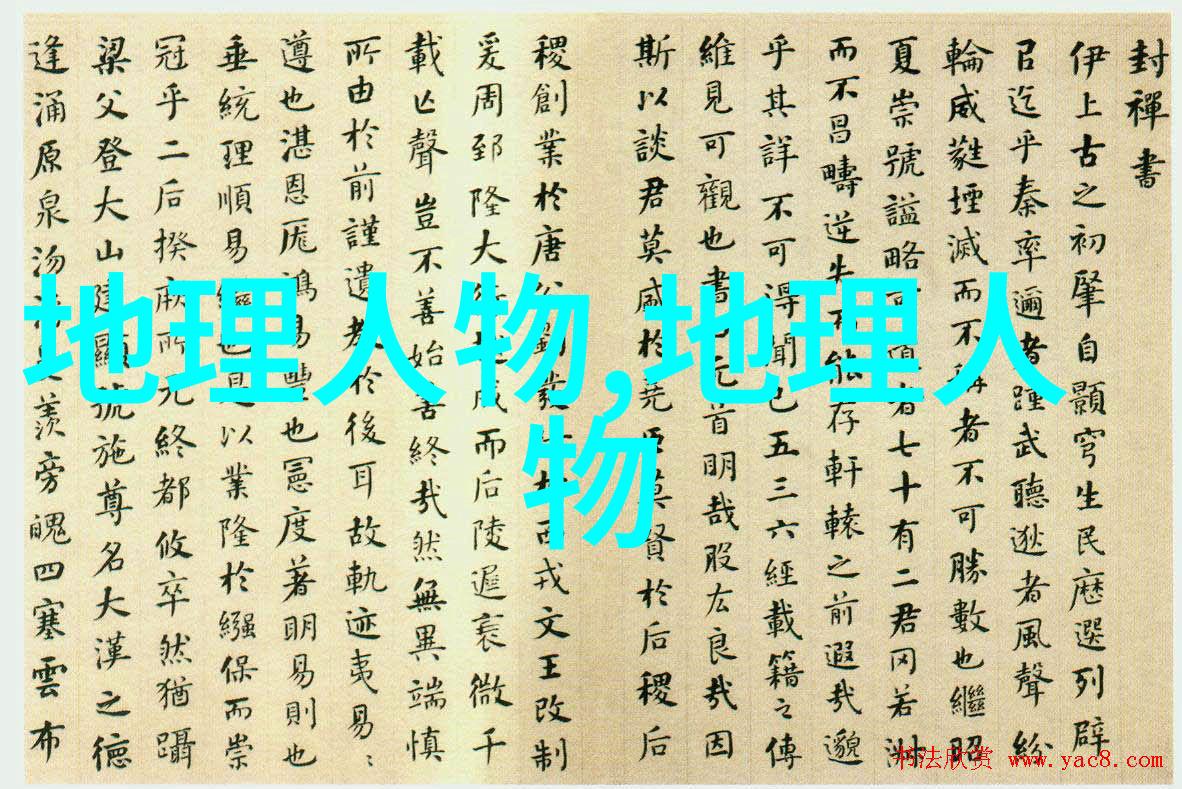 封禪書
伊上古之初肇自顥穹生民歷選列辟
以迄乎秦率邇者踵武聽逖者風聲紛
輪威蕤堙滅而不稱者不可勝數也繼昭
夏崇號謚略可道者七十有二君罔若淑
而不昌疇逆失而能存軒轅之前遐哉邈
乎其詳不可得聞已五三六經載籍之傳
維見可觀也書曰元首明哉股厷良哉因
斯以談君莫盛於堯臣莫賢於后稷后
稷創業於唐公劉發於西戎文王改制
爰周郅隆大行越成而后陵遲衰微千
載亡聲豈不善始善終哉然無異端慎
所由於前謹遺教於後耳故軌迹夷易〻
遵也湛恩厖鴻易豐也憲度著明易則也
垂統理順易繼也是以業隆於繦保而崇
冠乎二后揆厥所元終都攸卒然猶躡
梁父登大山建顯號施尊名大漢之德
逢涌原泉沕羨旁魄四塞雲布
地理人物,地理人
物
书法欣赏 www.yac8.com